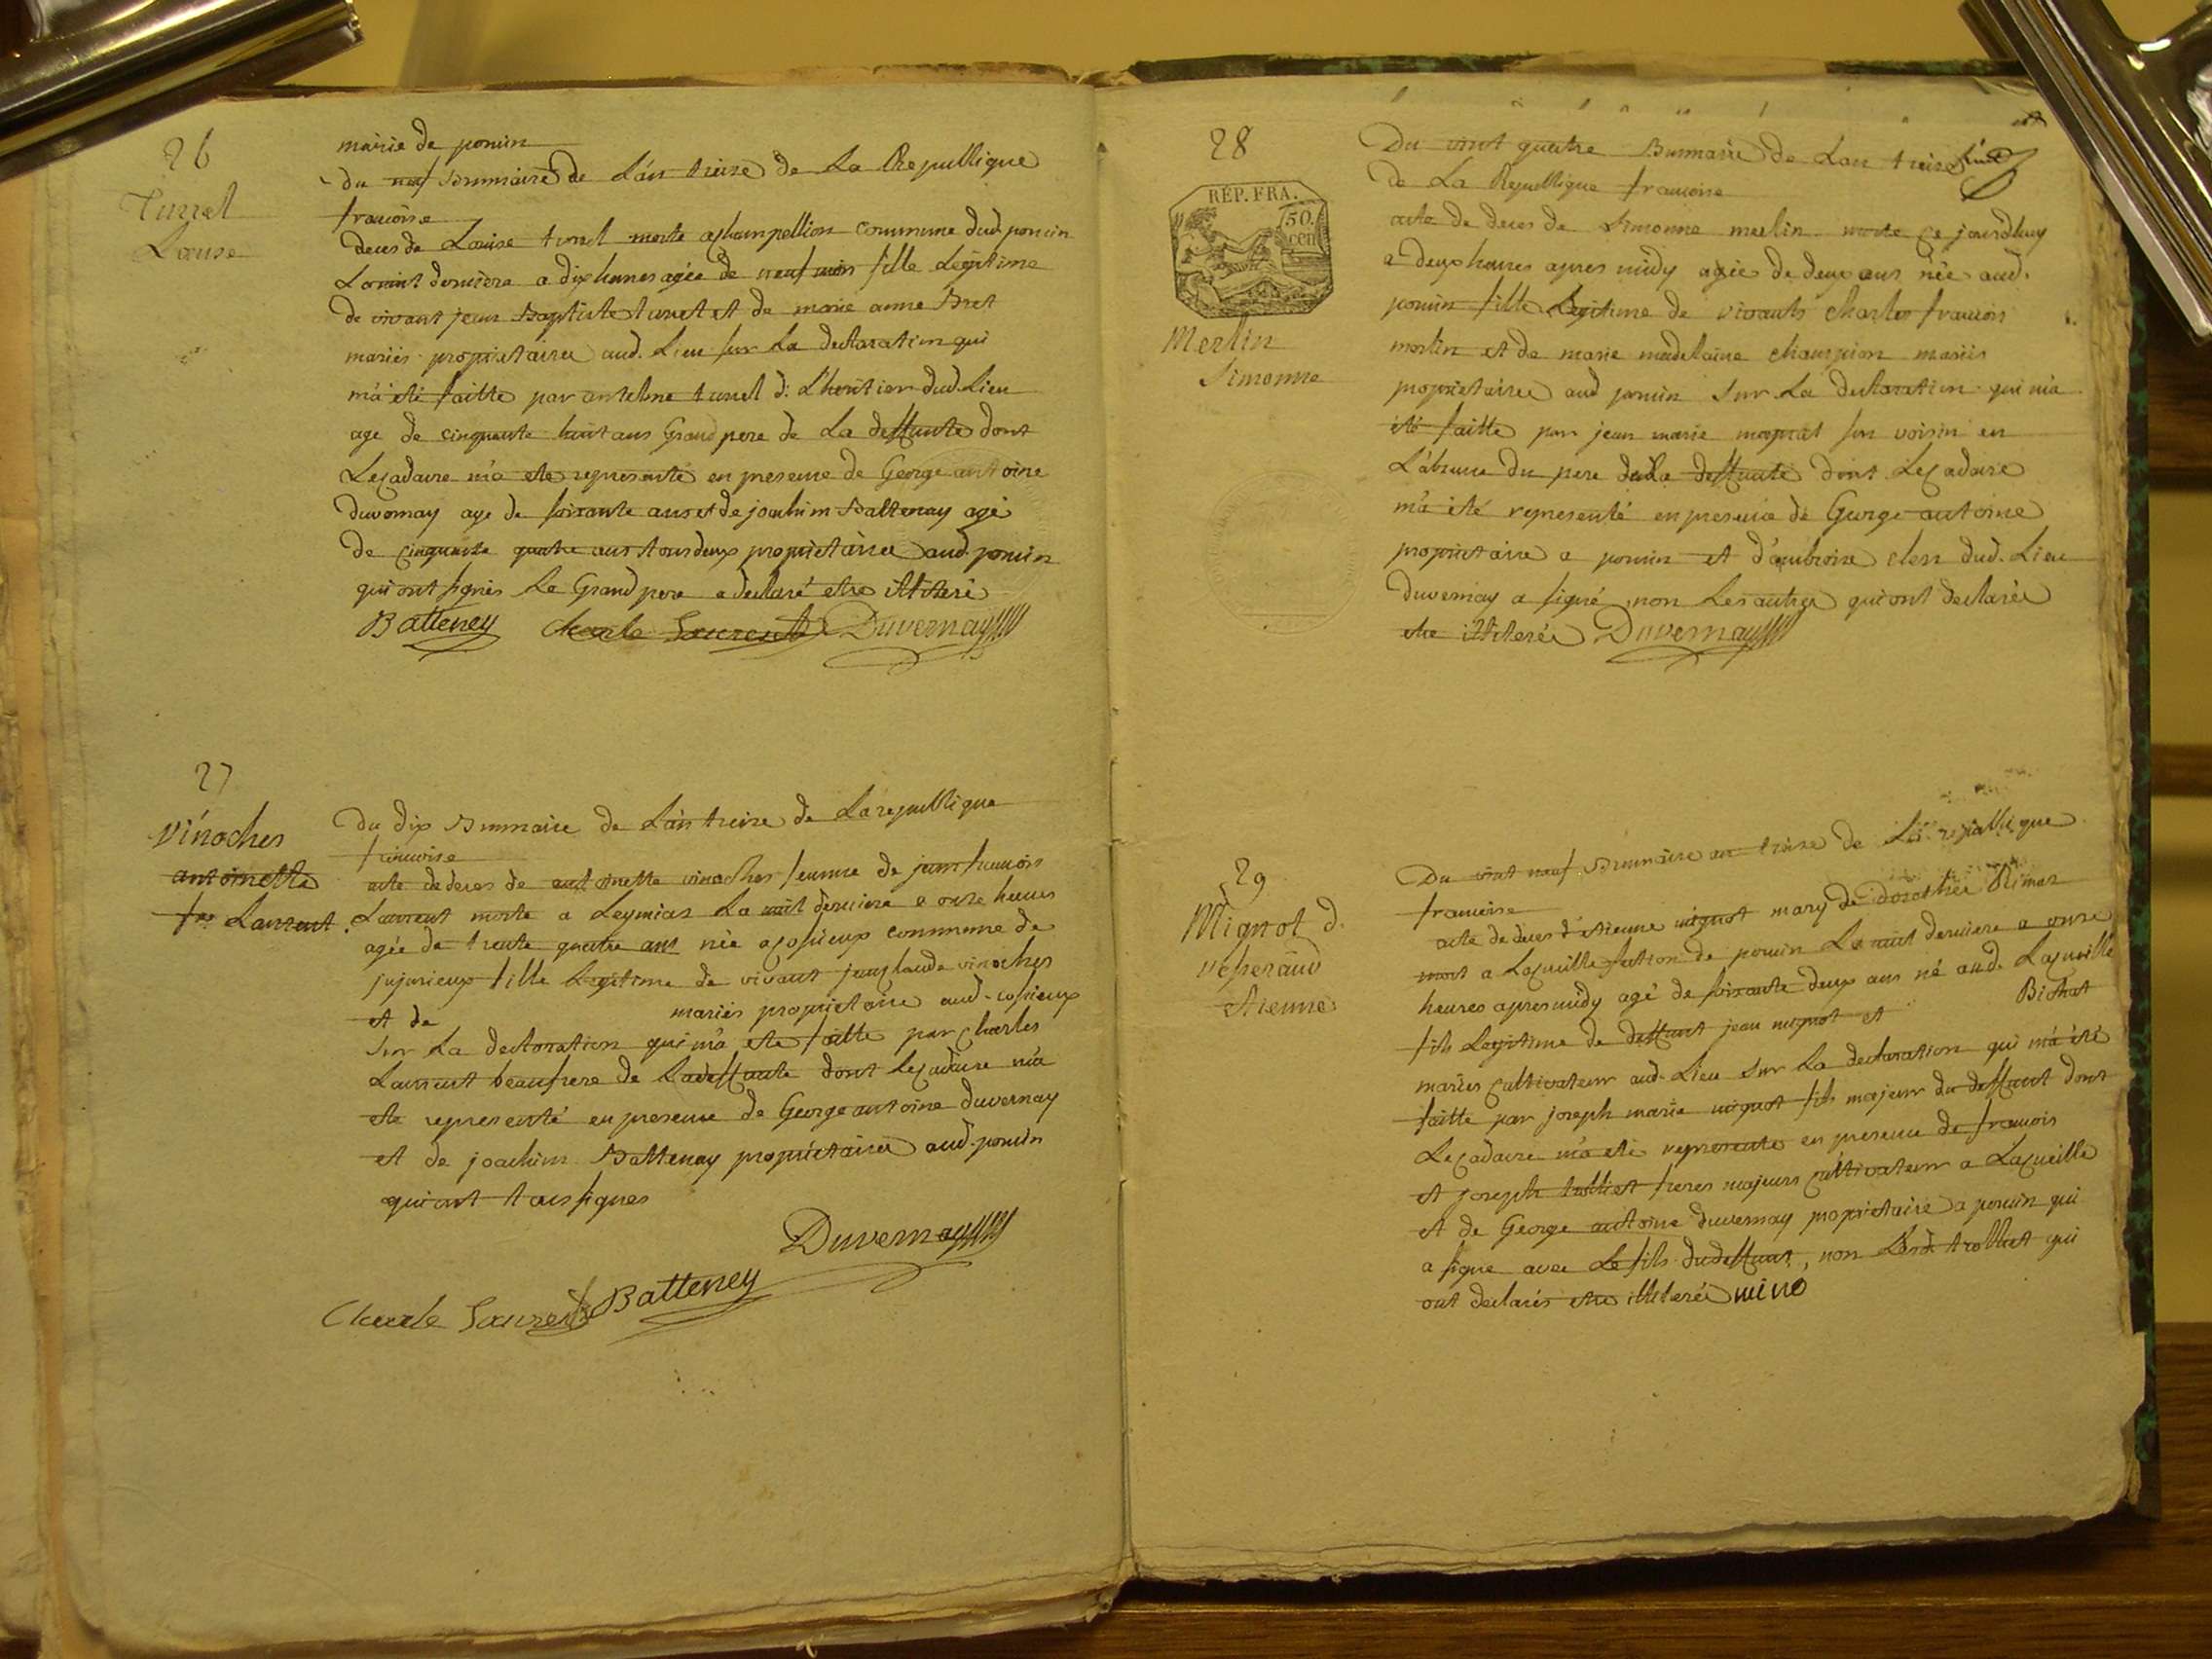 26
Turrel
Louise
mairie de poncin
du neuf Brumaire de L'an treize de La Republique
francoise
deces de Louise turrel morte a champellion commune dud. poncin
La nuit derniere a dix heures agée de neuf mois fille Legitime
de vivant jean Baptiste turrel et de marie anne Bret
mariés propriétaires aud. Lieu sur La declaration qui
m'a été faitte par antelme turrel d. L'heritier dud. Lieu
age de cinquante huit ans Grand pere de La deffunte dont
Le cadavre m'a ete representé en presence de George antoine
duvernay age de soixante ans et de joachim Battenay agé
de cinquante quatre ans tous deux propriétaires aud. poncin
qui ont signés Le Grand pere a declaré etre illiteré
Batteney Charle Laurent Duvernay
27
Vinoches
antoinette
fe Laurent.
Du dix Brumaire de L'an treize de La republique
francoise
acte de deces de antoinette vinoches femme de jean francois
Laurent morte a Leymiat La nuit derniere a onze heures
agée de trente quatre ans née a cosieux commune de
jujurieux fille Legitime de vivant jean claude vinoches
et de mariés propriétaire aud. cosieux
sur La declaration qui m'a ete faitte par Charles
Laurent beaufrere de La deffunte dont Le cadavre m'a
ete representé en presence de George antoine duvernay
et de joachim Battenay propriétaires aud. poncin
qui ont tous signes
Duvernay
Charle Laurent Batteney
28
RÉP. FRA.
50.
cen
Merlin
Simonne
Du vint quatre Brumaire de L'an treize
de La Republique francoise
acte de deces de Simonne merlin morte ce jourdhuy
a deux heures apres midy agée de deux ans née aud.
poncin fille Legitime de vivants Charles francois
merlin et de marie madelaine champion mariés
propriétaires aud poncin sur La declaration qui m'a
été faitte par jean marie son voisin en
L'absence du pere de La deffunte dont Le cadavre
m'a été representé en presence de George antoine
propriétaire a poncin et d'ambroise clerc dud. Lieu
duvernay a signé, non Les autres qui ont declarés
etre illiterés Duvernay
29
Mignot d.
Etienne
Du vint neuf Brumaire an treize de La republique
francoise
acte de deces d'etienne mignot mary de dorothée
mort a Lacueille section de poncin La nuit derniere a onze
heures apres midy agé de soixante deux ans né aud. Lacueille
fils Legitime de deffunt jean mignot et Bichat
mariés cultivateur aud. Lieu sur La declaration qui m'a été
faitte par joseph marie mignot fils majeur du deffunt dont
Le cadavre m'a eté representé en presence de francois
et joseph trolliet freres majeurs cultivateurs a Lacueille
et de George antoine duvernay propriétaire a poncin qui
a signé avec Le fils du deffunt, non Lesd. trolliet qui
ont declarés etre illiterés